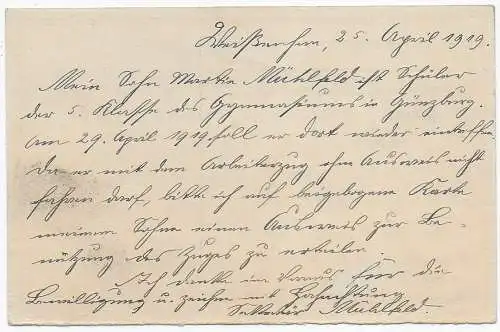 Weißenhorn, 25. April 1919.
Mein Sohn Martin Mühlfeld ist Schüler
der 5. Klasse des Gymnasiums in Günzburg.
Am 29. April 1919 soll er dort wieder eintreffen.
Da er mit dem Arbeiterzug ohne Ausweis nicht
fahren darf, bitte ich auf beigebogene Karte
meinem Sohne einen Ausweis zur Be-
nützung des Zuges zu erteilen.
Ich danke im Voraus für die
Bewilligung u. zeichne mit Hochachtung
Sekretär Mühlfeld.